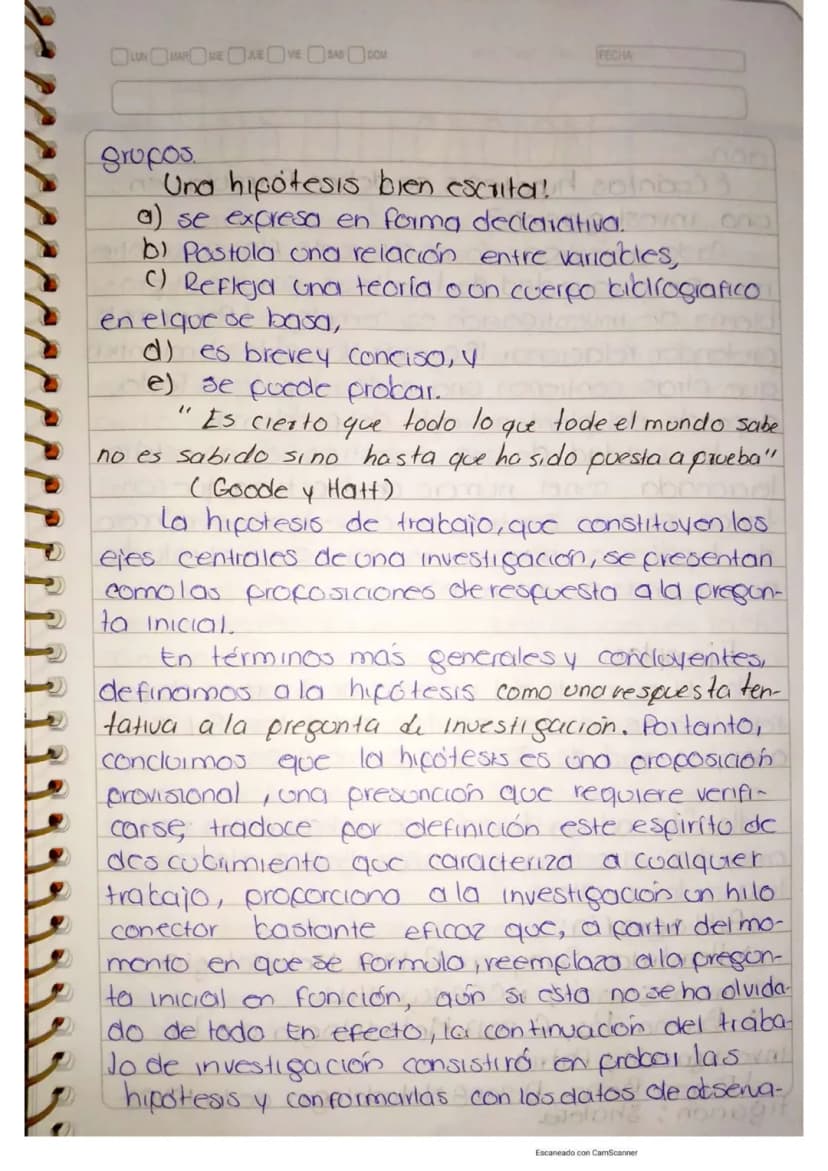 LUN MAR MIE JUE VIE SAB DOM FECHA
grupos.
Una hipótesis bien escrita!
a) se expresa en forma declarativa.
b) Postula una relación entre variables,
c) Refleja una teoría o un cuerpo bibliografico
en el que se basa,
d) es breve y concisa, y
e) se puede probar.
" Es cierto que todo lo que tode el mundo sabe
no es sabido sino hasta que ha sido puesta a prueba"
( Goode y Hatt)
La hipotesis de trabajo, que constituyen los
ejes centrales de una investigación, se presentan
como las proposiciones de respuesta a la pregun-
ta inicial.
En términos más generales y concluyentes,
definamos a la hipótesis como una respuesta ten-
tativa a la pregunta de investigación. Por tanto,
concluimos que la hipótesis es una proposición
provisional, una presunción que requiere verifi-
carse, traduce por definición este espiríto de
descubrimiento que caracteriza a cualquier
trabajo, proporciona a la investigación un hilo
conector bastante eficaz que, a partir del mo-
mento en que se formula, reemplaza a la pregun-
ta inicial en función, aún si esta no se ha olvida-
do de todo En efecto, la continuación del traba-
jo de investigación consistirá en probar las
hipótesis y conformarlas con los datos de observa-
Escaneado con CamScanner